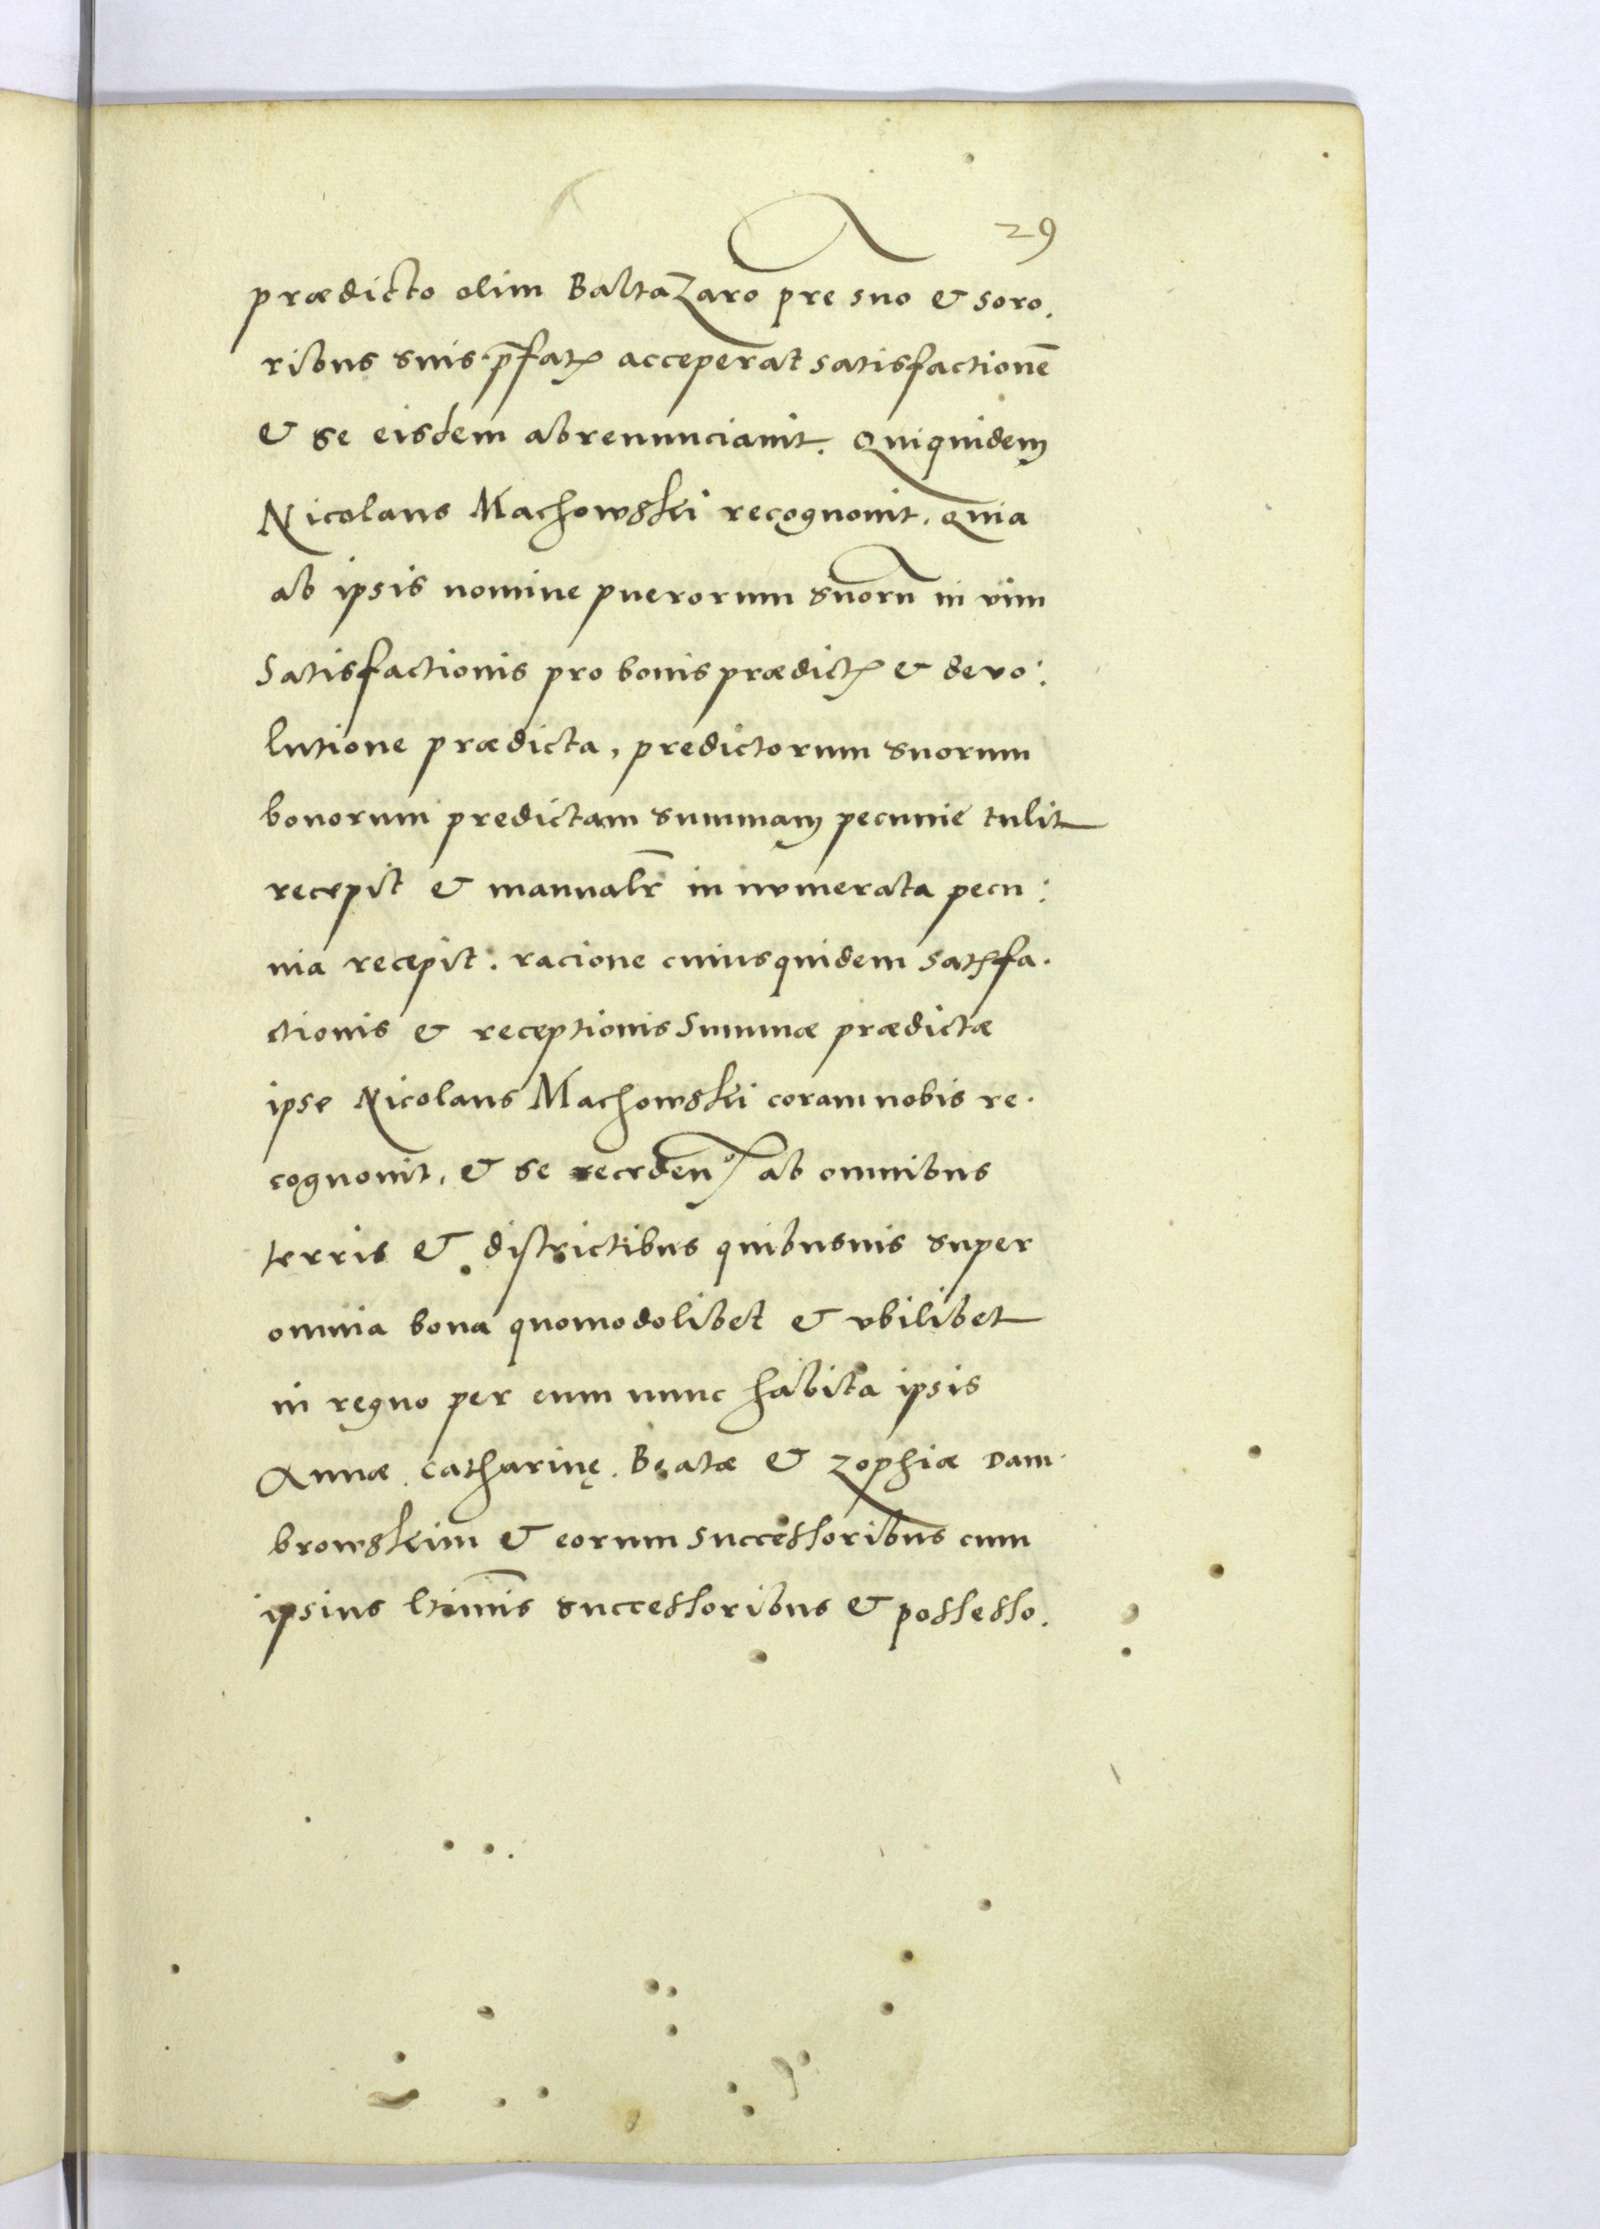 29
prædicto olim BaltaZaro pre suo & soro.
ribus suis p̄fatꝭ acceperat satisfactionē
& se eisdem abrenunciauit. Quiquidem
Nicolaus Machowski recognouit, Quia
ab ipsis nomine puerorum suorū in vim
Satisfactionis pro bonis prædictꝭ & devo:
lutione prædicta, predictorum suorum
bonorum predictam summam pecunie tulit
recepit & manualr̄ in numerata pecu:
nia recepit. racione cuiusquidem satꝭfa.
ctionis & receptionis Summæ prædictæ
ipse Nicolaus Machowski coram nobis re.
cognouit, & se ab omnibus
terris & districtibus quibusuis super
omnia bona quomodolibet & vbilibet
in regno per eum nunc habita ipsis
Annæ. Catharinę. Beatæ & Zophiæ Dam.
browskim & eorum successoribus cum
ipsius ltimis successoribus & possesso.